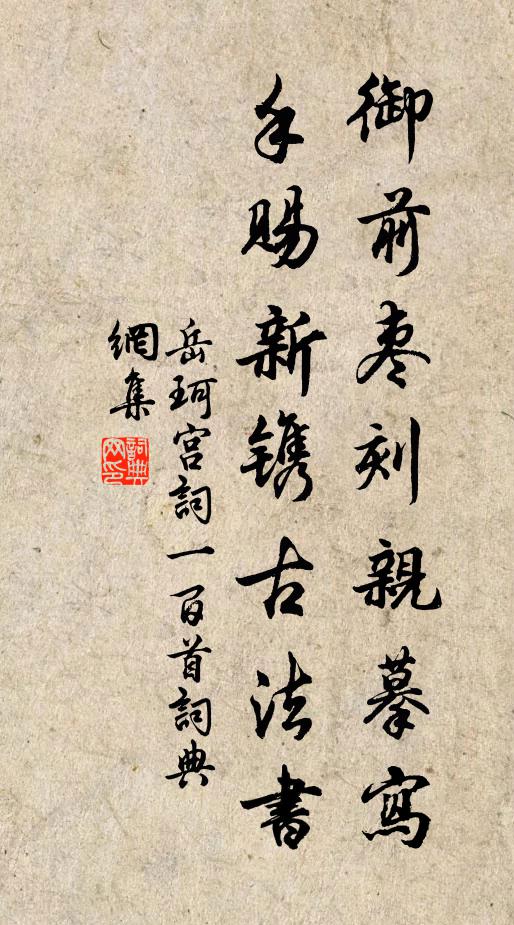 御前枣刻親摹寫
手賜新鐫古法書
岳珂宮詞一百首詞典
網集
詞典
网印